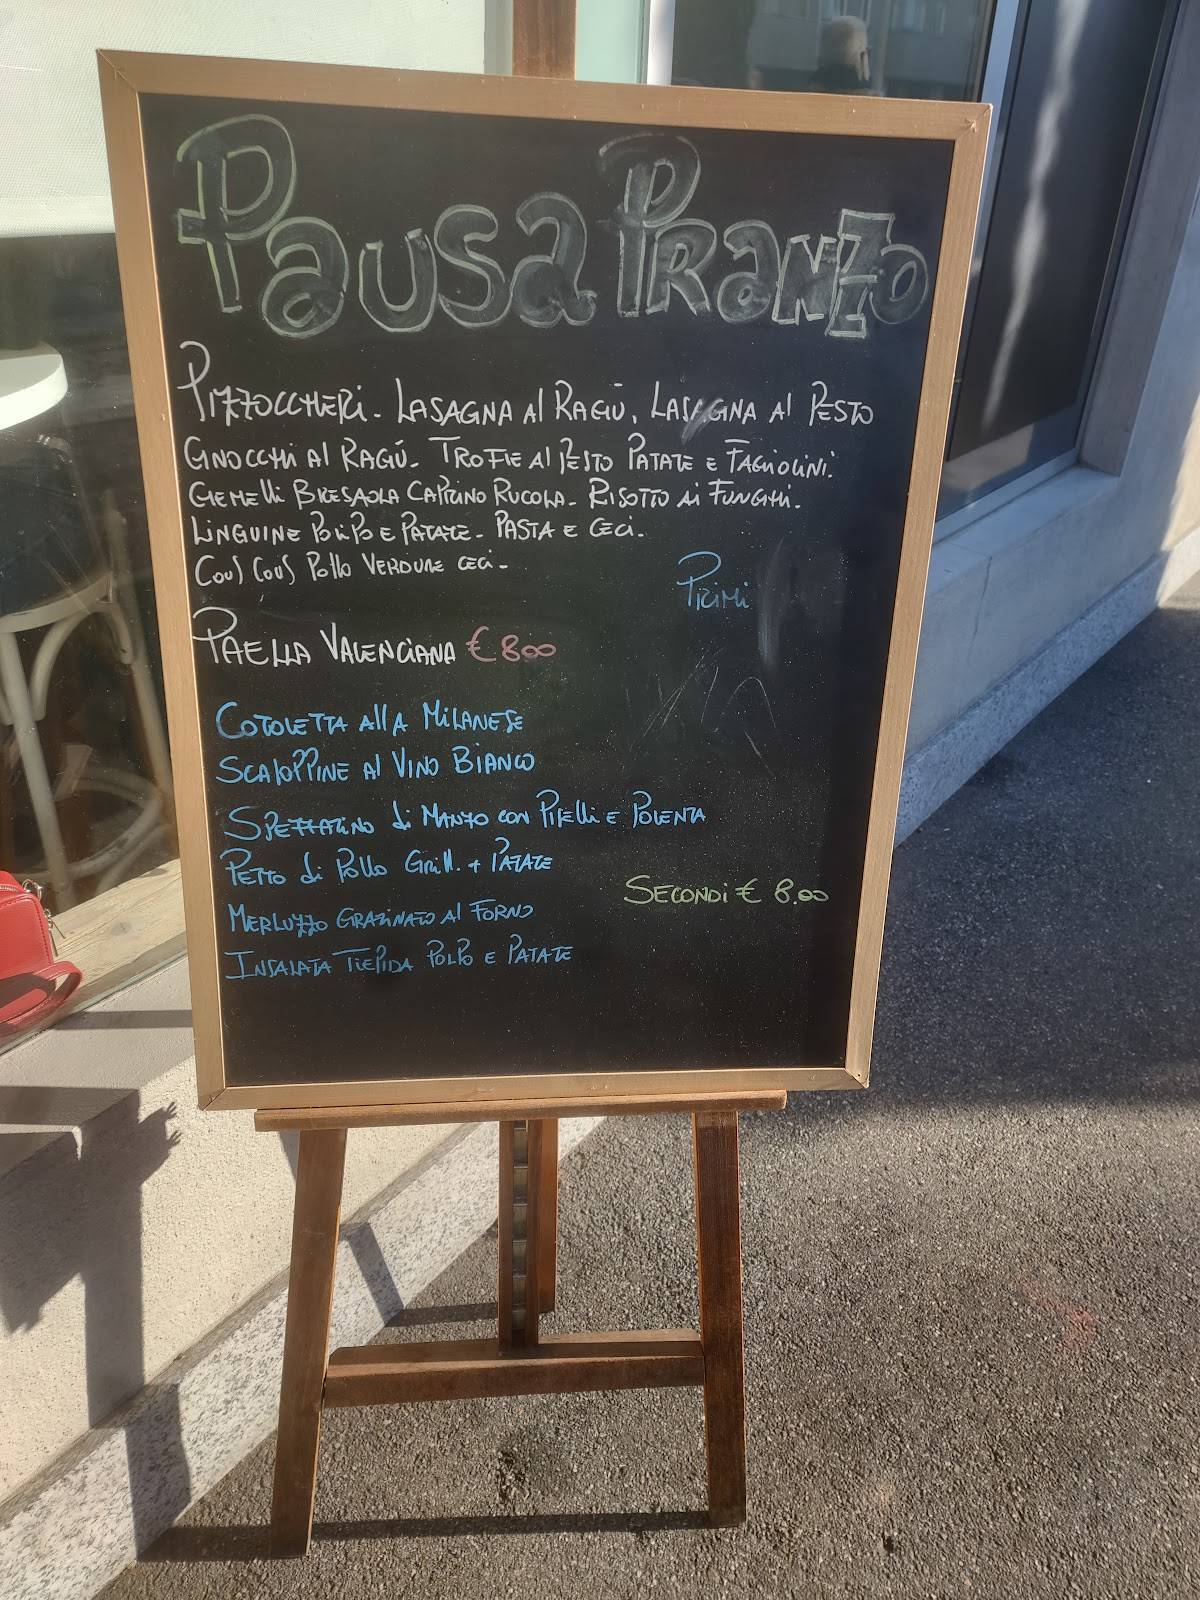 Pausa Pranzo
Pizzoccheri - Lasagna al Ragù, Lasagna al Pesto
Gnocchi al Ragú - Trofie al Pesto Patate e Fagiolini.
Gemelli Bresaola Caprino Rucola - Risotto ai Funghi.
Linguine Polipo e Patate - Pasta e Ceci.
Cous Cous Pollo Verdure Ceci -
Primi
Paella Valenciana € 8.00
Cotoletta alla Milanese
Scaloppine al Vino Bianco
Spezzatino di Manzo con Piselli e Polenta
Petto di Pollo Grill. + Patate
Secondi € 8.00
Merluzzo Gratinato al Forno
Insalata Tiepida Polpo e Patate